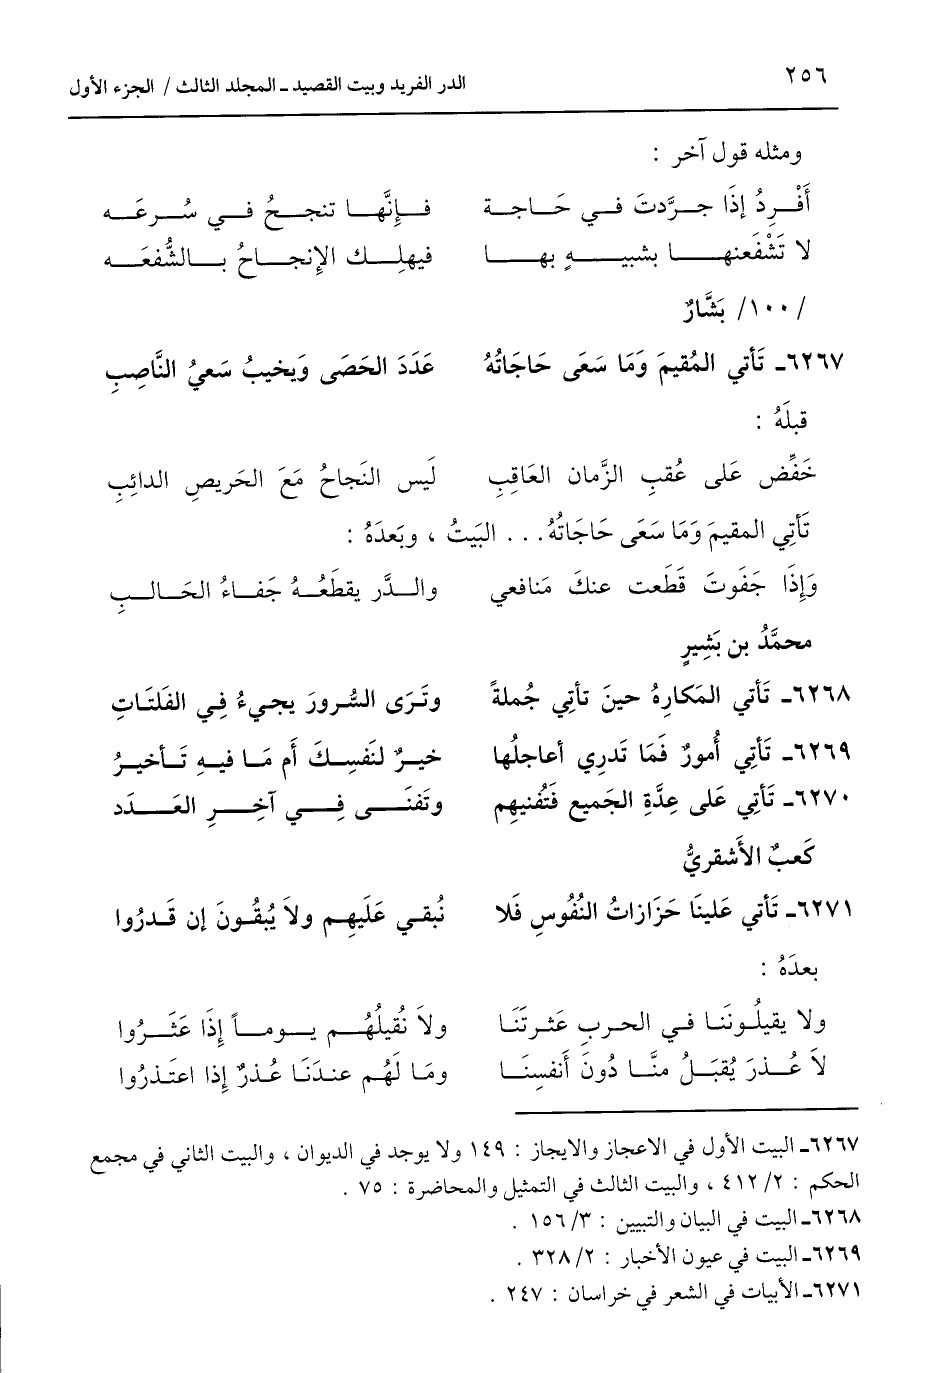 ٢٥٦ الدر الفريد وبيت القصيد ـ المجلد الثالث / الجزء الأول
ومثله قول آخر :
أَفْرِدُ إذَا جرَّدتَ في حَاجة فإنَّها تنجحُ في سُرعَه
لا تَشْفَعنها بشبيهٍ بها فيهلِك الإنجاحُ بالشُّفعَه
/١٠٠/ بَشَّارٌ
٦٢٦٧ـ تَأتي المُقيمَ وَمَا سَعَى حَاجَاتُهُ عَدَدَ الحَصَى وَيخيبُ سَعيُ النَّاصِبِ
قبلَهُ :
خَفِّض عَلى عُقبِ الزَّمان العَاقِبِ لَيس النَجاحُ مَعَ الحَريصِ الدائِبِ
تَأتِي المقيمَ وَمَا سَعَى حَاجَاتُهُ... البَيتُ ، وبَعدَهُ :
وَإِذَا جَفَوتَ قَطَعت عنكَ مَنافعي والدَّر يقطَعُهُ جَفاءُ الحَالبِ
محمَّدُ بن بَشِيرٍ
٦٢٦٨ـ تَأتي المَكارِهُ حينَ تأتِي جُملةً وتَرَى السُّرورَ يجيءُ فِي الفَلتَاتِ
٦٢٦٩ـ تَأتِي أُمورٌ فَمَا تَدرِي أعاجلُها خيرٌ لنَفسِكَ أَم مَا فيهِ تَأخيرُ
٦٢٧٠ـ تَأتِي عَلى عِدَّةِ الجَميع فَتُفنيهم وتَفنَى فِي آخِرِ العَدَد
كَعبٌ الأَشقريُّ
٦٢٧١ـ تَأتي عَلينَا حَزَازاتُ النُّفُوسِ فَلا نُبقي عَلَيهِم ولاَ يُبقُونَ إن قَدرُوا
بعدَهُ :
ولا يقيلُونَنا في الحربِ عَثرتَنَا ولاَ نُقيلُهُم يوماً إذَا عَثَرُوا
لاَ عُذرَ يُقبَلُ منَّا دُونَ أَنفسِنَا ومَا لَهُم عندَنَا عُذرٌ إذا اعتَذرُوا
٦٢٦٧ـ البيت الأول في الاعجاز والايجاز : ١٤٩ ولا يوجد في الديوان ، والبيت الثاني في مجمع
الحكم : ٤١٢/٢ ، والبيت الثالث في التمثيل والمحاضرة : ٧٥ .
٦٢٦٨ـ البيت في البيان والتبيين : ١٥٦/٣ .
٦٢٦٩ـ البيت في عيون الأخبار : ٣٢٨/٢ .
٦٢٧١ـ الأبيات في الشعر في خراسان : ٢٤٧ .